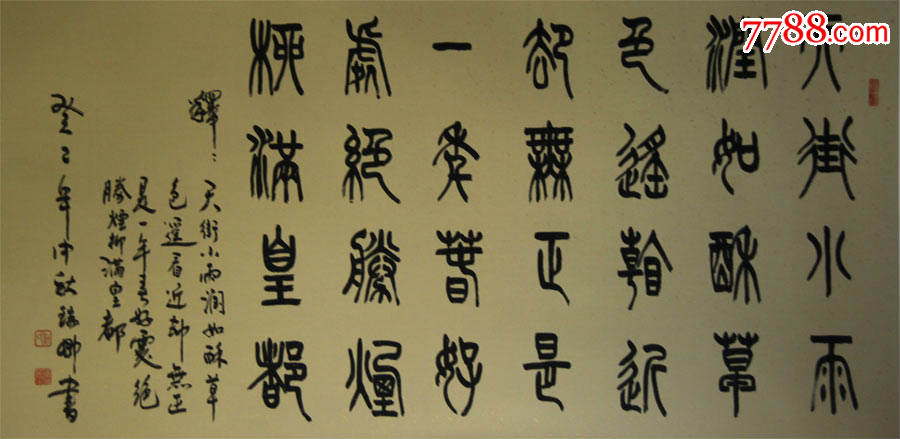 7788.com
天街小雨
潤如酥草
色遙看近
却無正是
一年春好
處絕勝煙
柳滿皇都
釋：天街小雨潤如酥草
色遙看近却無正
是一年春好處絕
勝煙柳滿皇都
癸巳年仲秋書